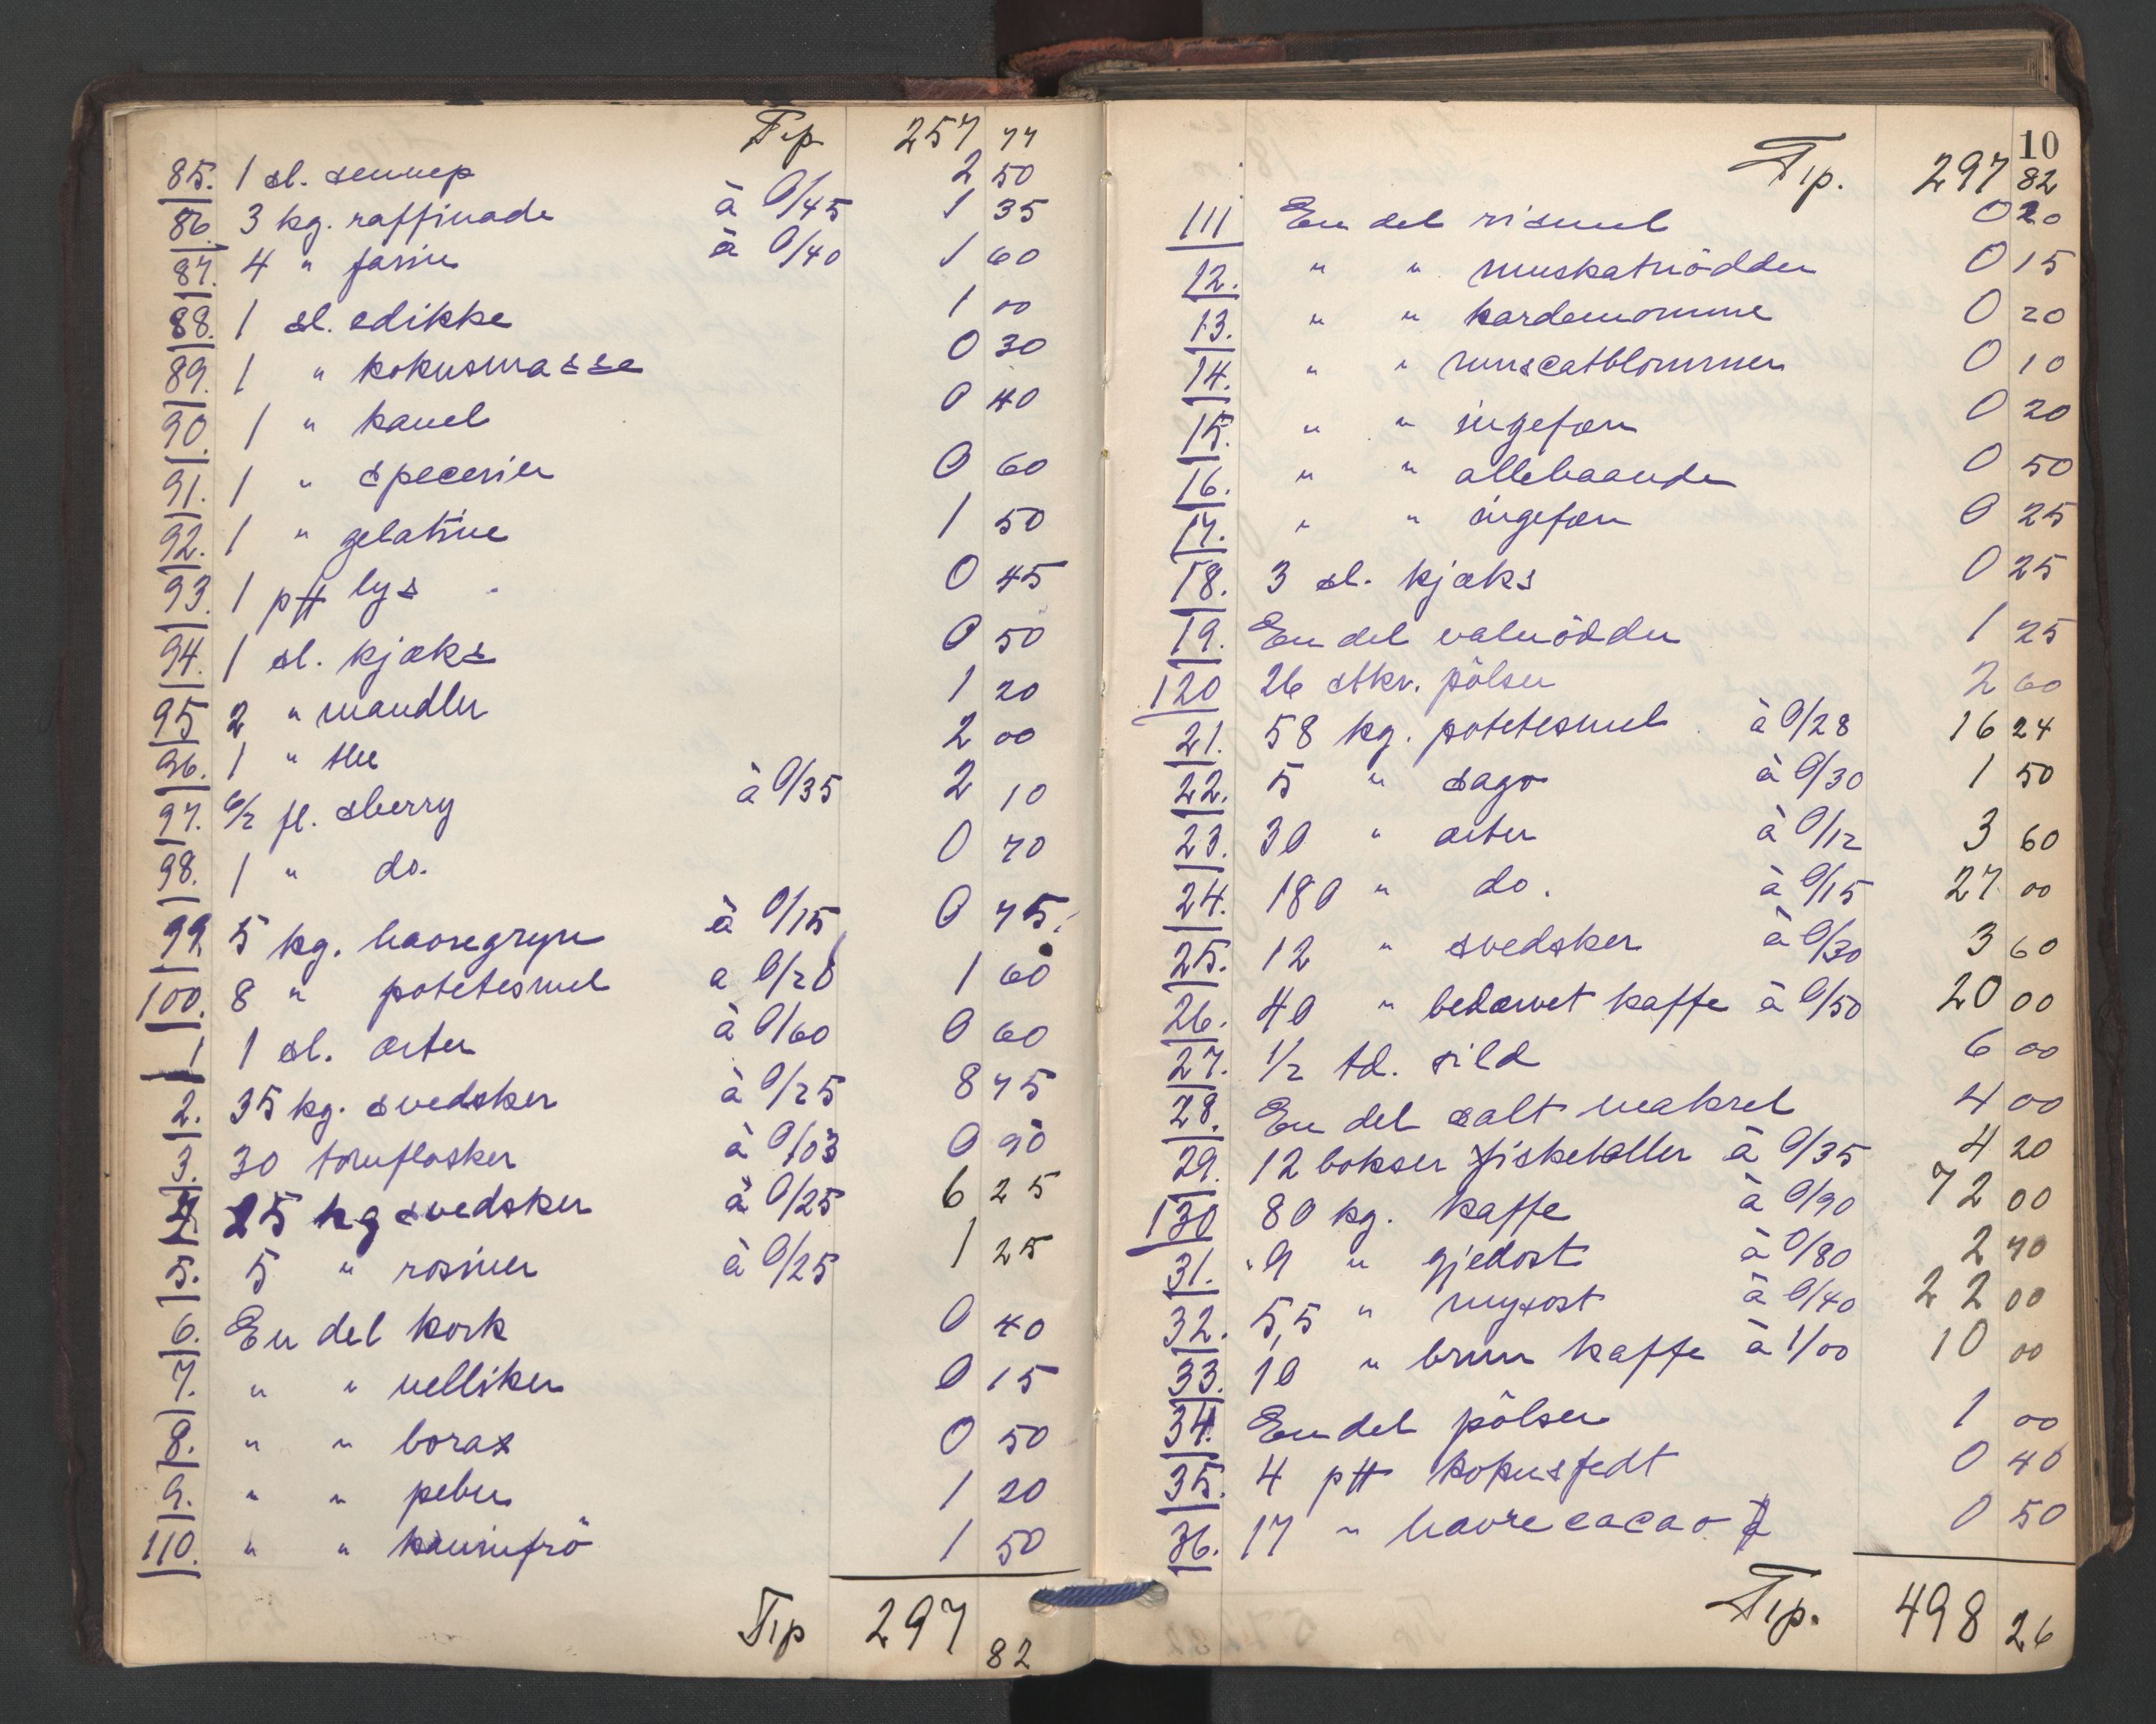 Trp. 257 77
85. 1 sl. sennep 2 50
86. 3 kg. raffinade à 0/45 1 35
87. 4 " farin à 0/40 1 60
88. 1 sl. edikke 1 00
89. 1 " kokusmasse 0 30
90. 1 " kanel 0 40
91. 1 " specerier 0 60
92. 1 " gelatine 1 50
93. 1 ptt lys 0 45
94. 1 sl. kjæks 0 50
95 2 " mandler 1 20
96. 1 " the 2 00
97. 6/2 fl. sherry à 0/35 2 10
98. 1 " do. 0 70
99 5 kg. havregryn à 0/15 0 75.
100. 8 " potetesmel a 0/20 1 60
1 1 sl. ærter à 0/60 0 60
2. 35 kg. svedsker à 0/25 8 75
3. 30 tomflasker à 0/03 0 90
4 25 kg svedsker à 0/25 6 25
5. 5 " rosiner à 0/25 1 25
6. En del kork 0 40
7. " " nelliker 0 15
8. " " borax 0 50
9. " " peber 1 20
110. " " 1 50
Trp 297 82
10
Trp. 297 82
111 En del rismel 0 20
12. " " muskatnödder 0 15
13. " " kardemomme 0 20
14. " " muscatblommer 0 10
15. " " ingefær 0 20
16. " " allehaande 0 50
17. " " ingefær 0 25
18. 3 sl. kjæks 0 25
19. En del valnödder 1 25
120 26 stkr. pölser 2 60
21. 58 kg. potetesmel à 0/28 16 24
22. 5 " sago à 0/30 1 50
23. 30 " ærter à 0/12 3 60
24. 180 " do. à 0/15 27 00
25. 12 " svedsker à 0/30 3 60
26. 40 " bedærvet kaffe à 0/50 20 00
27. 1/2 td. sild 6 00
28. En del salt makrel 4 00
29. 12 bokser fiskeboller à 0/35 4 20
130 80 kg. kaffe à 0/90 72 00
31. .9 " gjedost à 0/80 2 70
32. 5,5 " mysost à 0/40 2 2 00
33. 10 " brun kaffe à 1/00 10 00
34. En del pölser 1 00
35. 4 ptt kokusfedt 0 40
36. 17 " havrecacao 0 50
Trp. 498 26